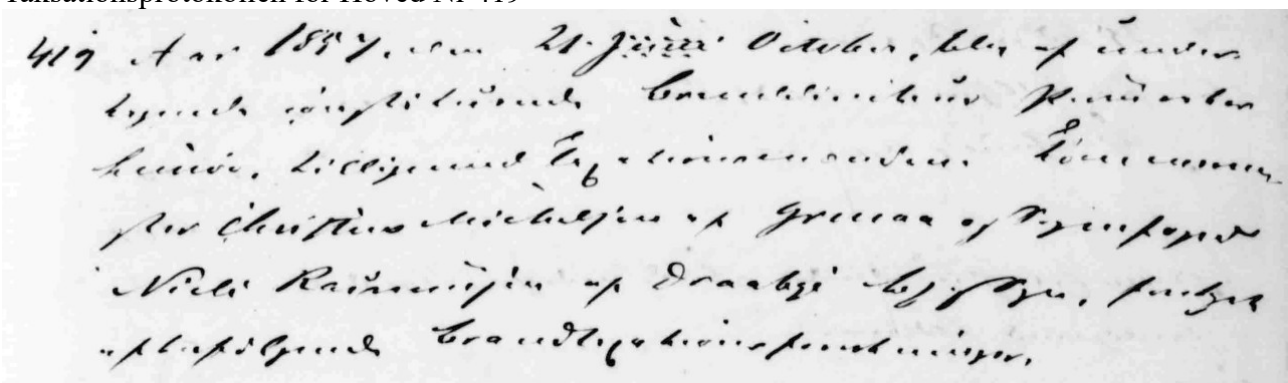 Taksationsprotokollen for Hoved Nr 419
419 Aar 1857, den 21. Juni October, blev af under-
tegnede constituerede Branddirecteur
tilligemed Taxationsmændene Tømmerme-
ster Christian Michelsen af Grenaa og Sognefoged
Niels Rasmussen af Draabye foretaget
efterfølgende Brandtaxationsforretninger.